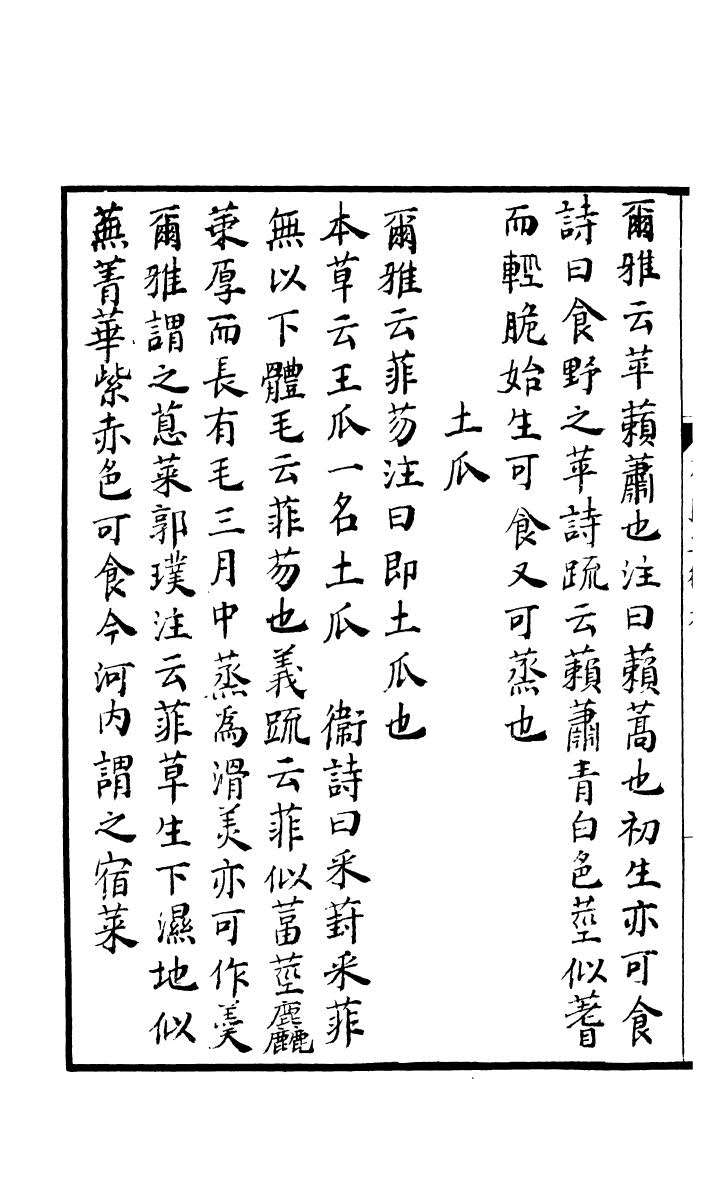 爾雅云苹藾蕭也注曰藾蒿也初生亦可食
詩曰食野之苹詩疏云藾蕭青白色莖似蓍
而輕脆始生可食又可蒸也
土瓜
爾雅云菲芴注曰即土瓜也
本草云王瓜一名土瓜　衞詩曰采葑采菲
無以下體毛云菲芴也義疏云菲似葍莖麤
葉厚而長有毛三月中蒸為滑美亦可作羹
爾雅謂之蒠菜郭璞注云菲草生下濕地似
蕪菁華紫赤色可食今河内謂之宿菜